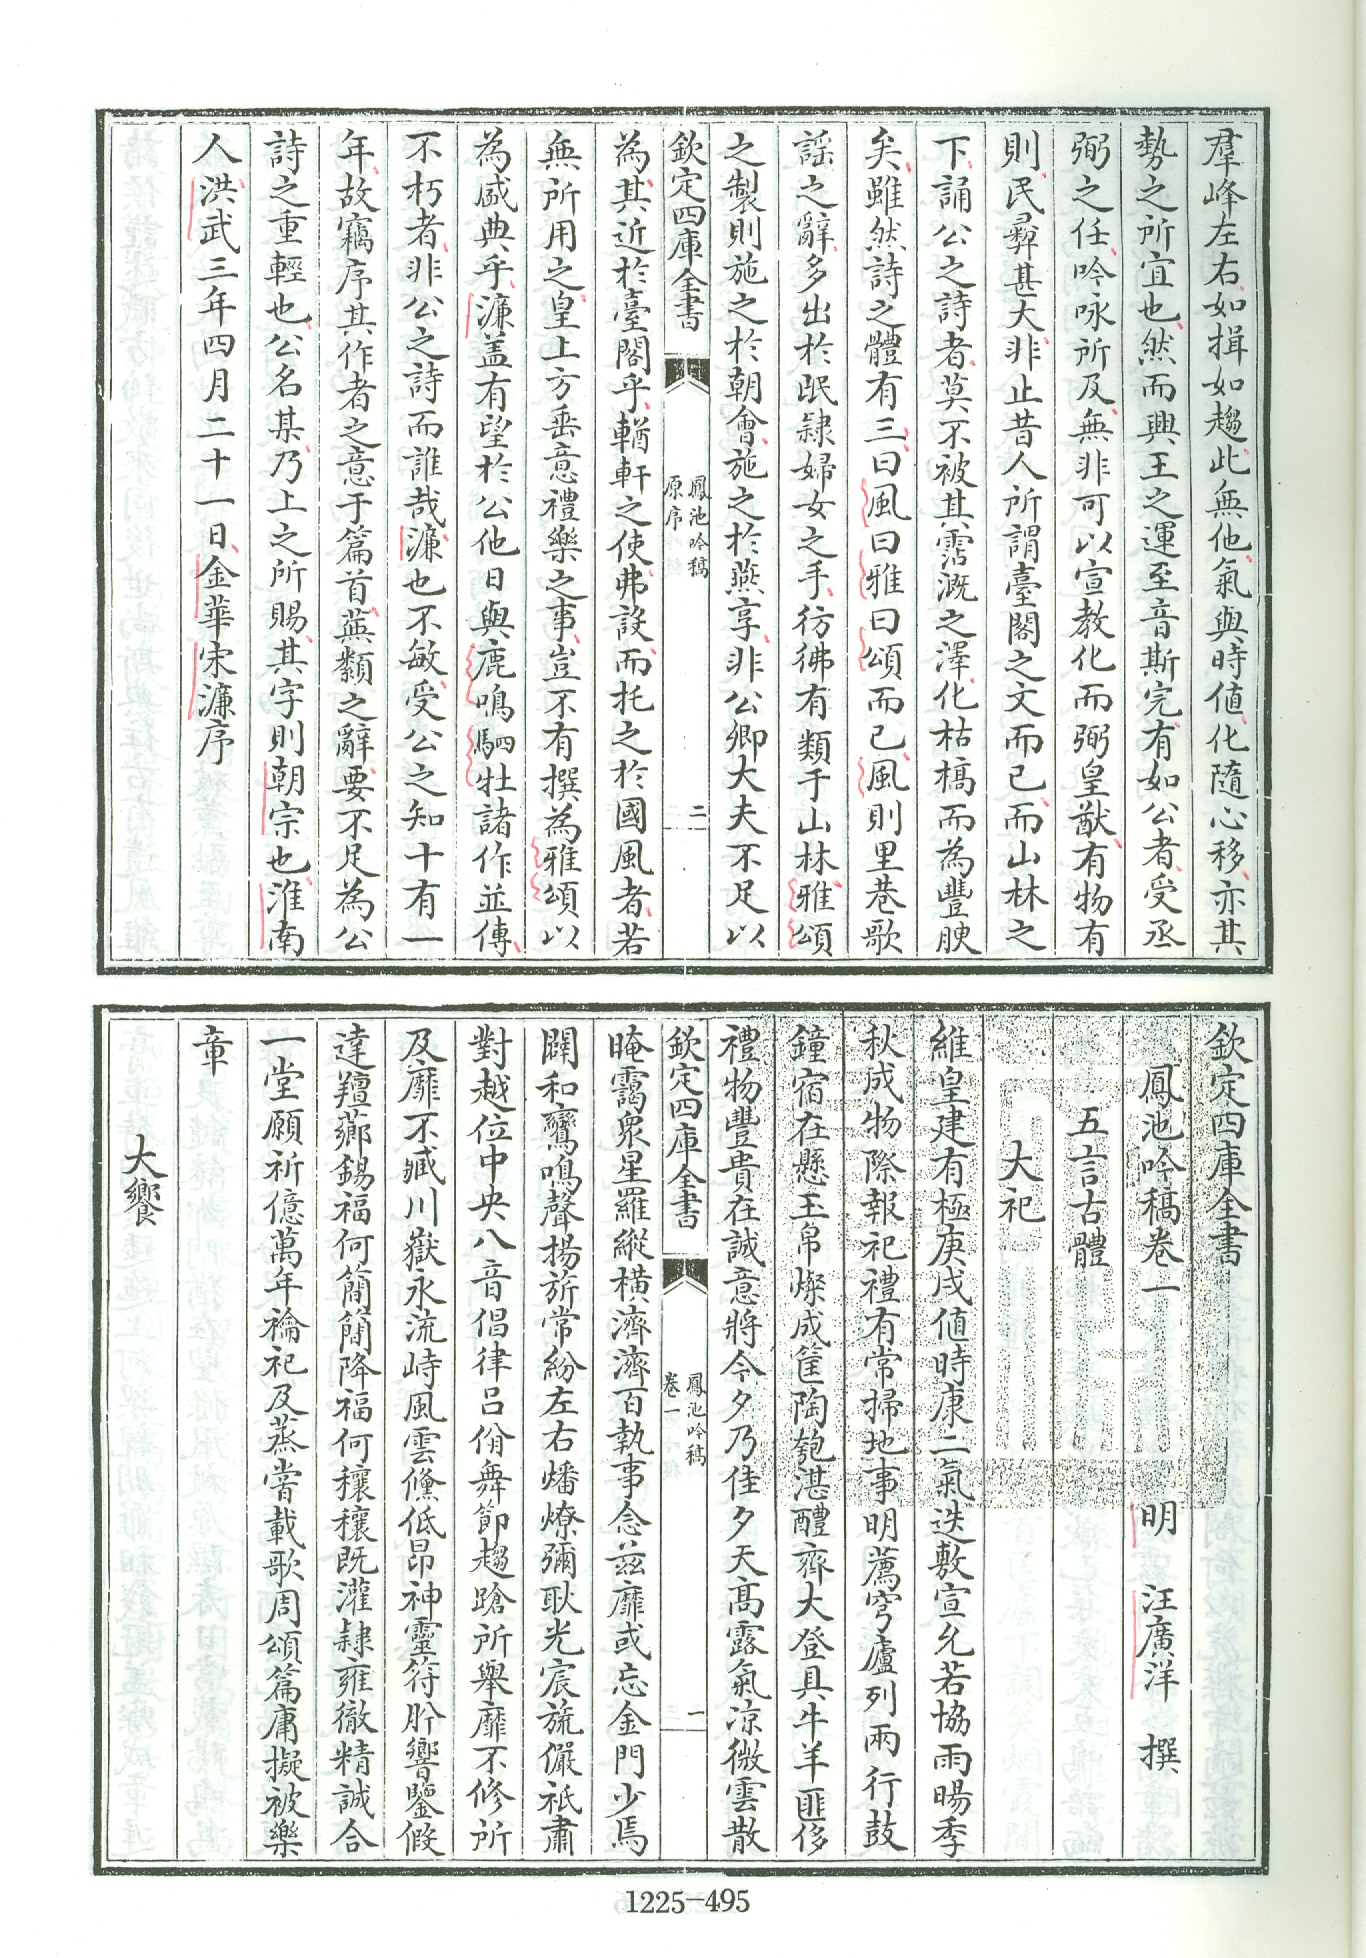 羣峰左右如揖如趨此無他氣與時值化隨心移亦其
勢之所宜也然而興王之運至音斯完有如公者受丞
弼之任吟咏所及無非可以宣教化而弼皇猷有物有
則民彛甚大非止昔人所謂臺閣之文而已而山林之
下誦公之詩者莫不被其霑溉之澤化枯槁而為豐腴
矣雖然詩之體有三曰風曰雅曰頌而已風則里巷歌
謡之辭多出於氓隷婦女之手彷彿有類于山林雅頌
之製則施之於朝會施之於燕享非公卿大夫不足以
欽定四庫全書
鳳池吟稿
原序
二
為其近於臺閣乎輶軒之使弗設而托之於國風者若
無所用之皇上方垂意禮樂之事豈不有撰為雅頌以
為盛典乎濂盖有望於公他日與鹿鳴駟牡諸作並傳
不朽者非公之詩而誰哉濂也不敏受公之知十有一
年故竊序其作者之意于篇首蕪纇之辭要不足為公
詩之重輕也公名某乃上之所賜其字則朝宗也淮南
人洪武三年四月二十一日金華宋濂序
欽定四庫全書
鳳池吟稿卷一
明 汪廣洋 撰
五言古體
大祀
維皇建有極庚戌值時康二氣迭敷宣允若協雨暘季
秋成物際報祀禮有常掃地事明薦穹廬列兩行鼓
鐘宿在懸玉帛燦成筐陶匏湛醴齊大登具牛羊匪侈
禮物豐貴在誠意將今夕乃佳夕天髙露氣凉微雲散
欽定四庫全書
鳳池吟稿
卷一
一
晻靄衆星羅縱橫濟濟百執事念兹靡或忘金門少焉
闢和鸞鳴聲揚旂常紛左右燔燎彌耿光宸旒儼祇肅
對越位中央八音倡律呂佾舞節趨蹌所舉靡不修所
及靡不臧川嶽永流峙風雲儵低昂神靈符肸響鑒假
達羶薌錫福何簡簡降福何穰穰既灌隷雍徹精誠合
一堂願祈億萬年禴祀及蒸嘗載歌周頌篇庸擬被樂
章
大饗
1225-495